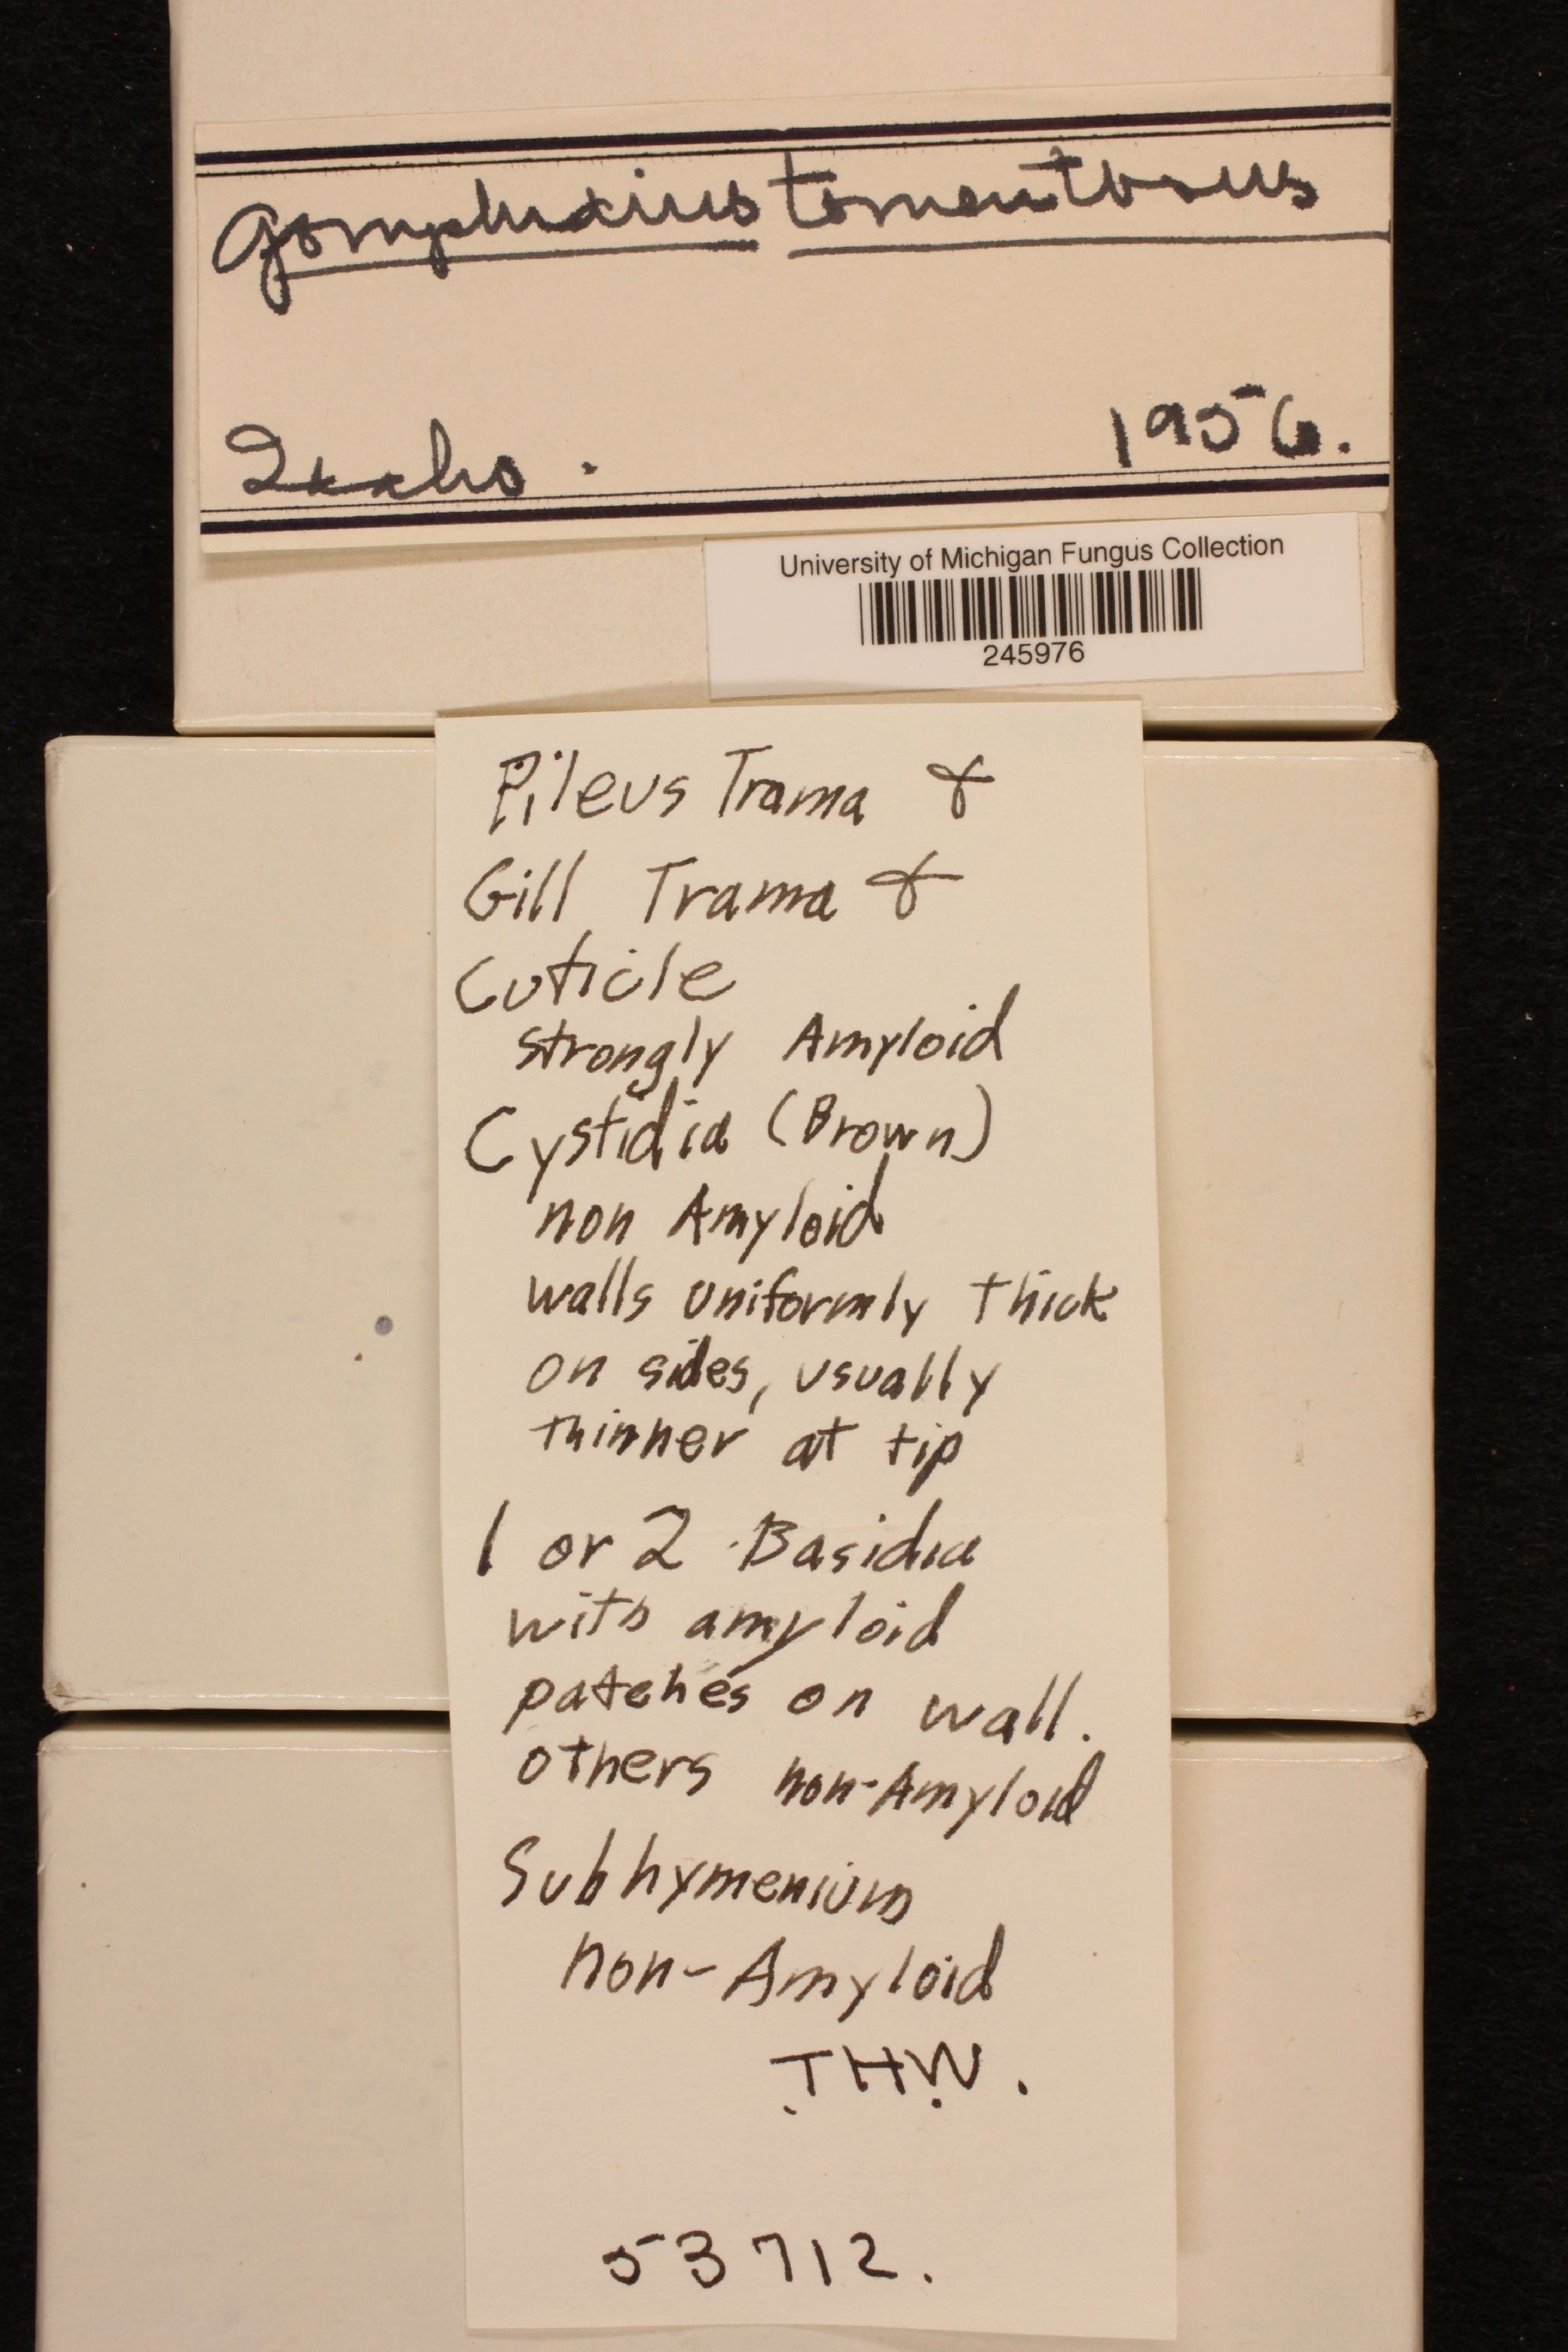 Gomphidius tomentosus
Idaho.
1956.
University of Michigan Fungus Collection
245976
Pileus Trama &
Gill Trama &
Cuticle
strongly Amyloid
Cystidia (Brown)
non Amyloid
walls uniformly thick
on sides, usually
thinner at tip
1 or 2 Basidia
with amyloid
patches on wall.
others non-Amyloid
Subhymenium
non-Amyloid
THW.
53712.